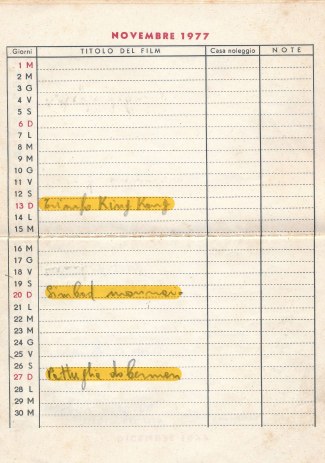 NOVEMBRE 1977
Giorni TITOLO DEL FILM Casa noleggio NOTE
1 M
2 M
3 G
4 V
5 S
6 D
7 L
8 M
9 M
10 G
11 V
12 S
13 D Trionfo King Kong
14 L
15 M
16 M
17 G
18 V
19 S
20 D Simbad
21 L
22 M
23 M
24 G
25 V
26 S
27 D Pattuglia doberman
28 L
29 M
30 M